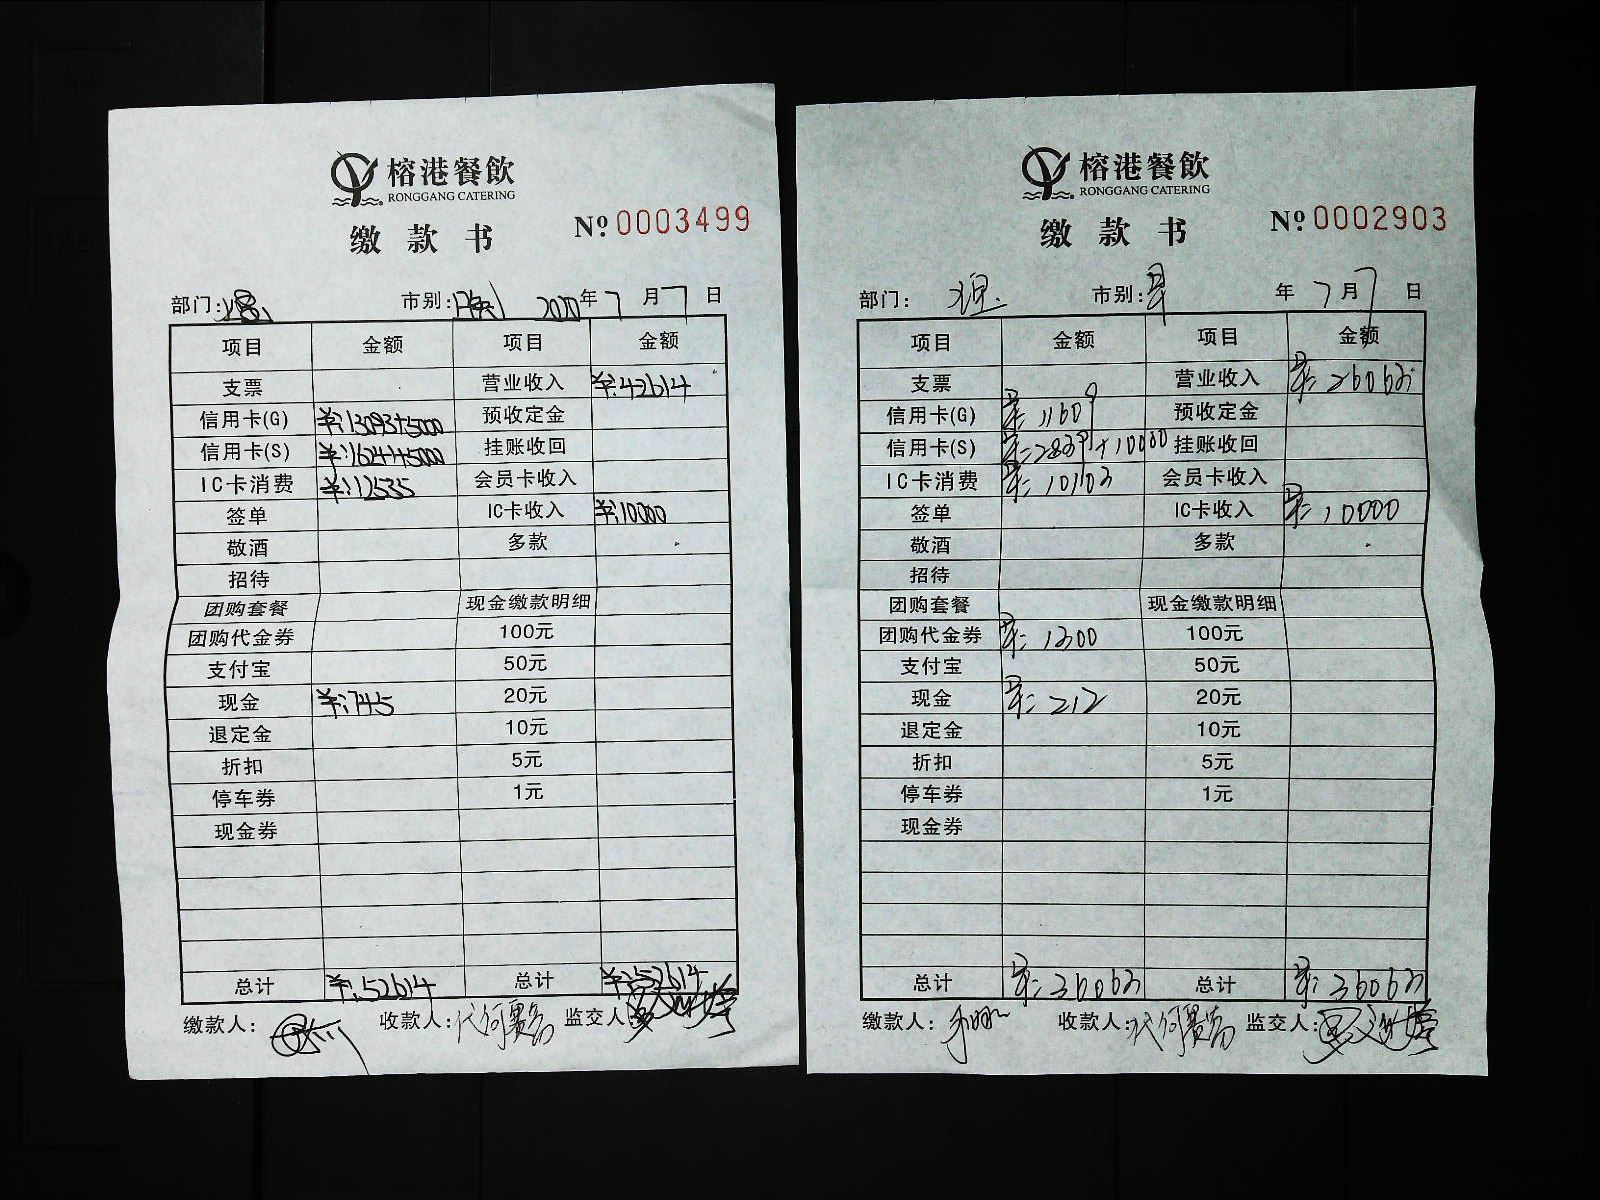 榕港餐飲
RONGGANG CATERING
缴款书
№ 0003499
部门: 市别: 2020年7月7日
项目 金额 项目 金额
支票 营业收入 ¥:42614
信用卡(G) ¥:13093+5000 预收定金
信用卡(S) ¥:16241+5000 挂账收回
IC卡消费 ¥:12535 会员卡收入
签单 IC卡收入 ¥:10000
敬酒 多款
招待
团购套餐 现金缴款明细
团购代金券 100元
支付宝 50元
现金 ¥:745 20元
退定金 10元
折扣 5元
停车券 1元
现金券
总计 ¥:52614 总计 ¥:52614
缴款人: 收款人: 监交人:
榕港餐飲
RONGGANG CATERING
缴款书
№ 0002903
部门: 市别:早 年7月7日
项目 金额 项目 金额
支票 营业收入 ¥:26063
信用卡(G) ¥:11609 预收定金
信用卡(S) ¥:2839+10000 挂账收回
IC卡消费 ¥:10103 会员卡收入
签单 IC卡收入 ¥:10000
敬酒 多款
招待
团购套餐 现金缴款明细
团购代金券 ¥:1300 100元
支付宝 50元
现金 ¥:212 20元
退定金 10元
折扣 5元
停车券 1元
现金券
总计 ¥:36063 总计 ¥:36063
缴款人: 收款人: 监交人: